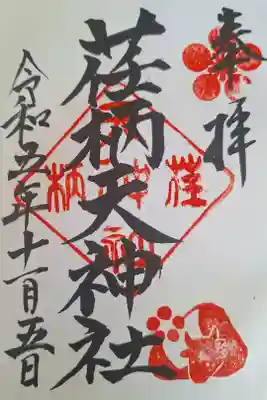 奉拝
荏柄天神社
荏柄天神社
令和五年十一月五日